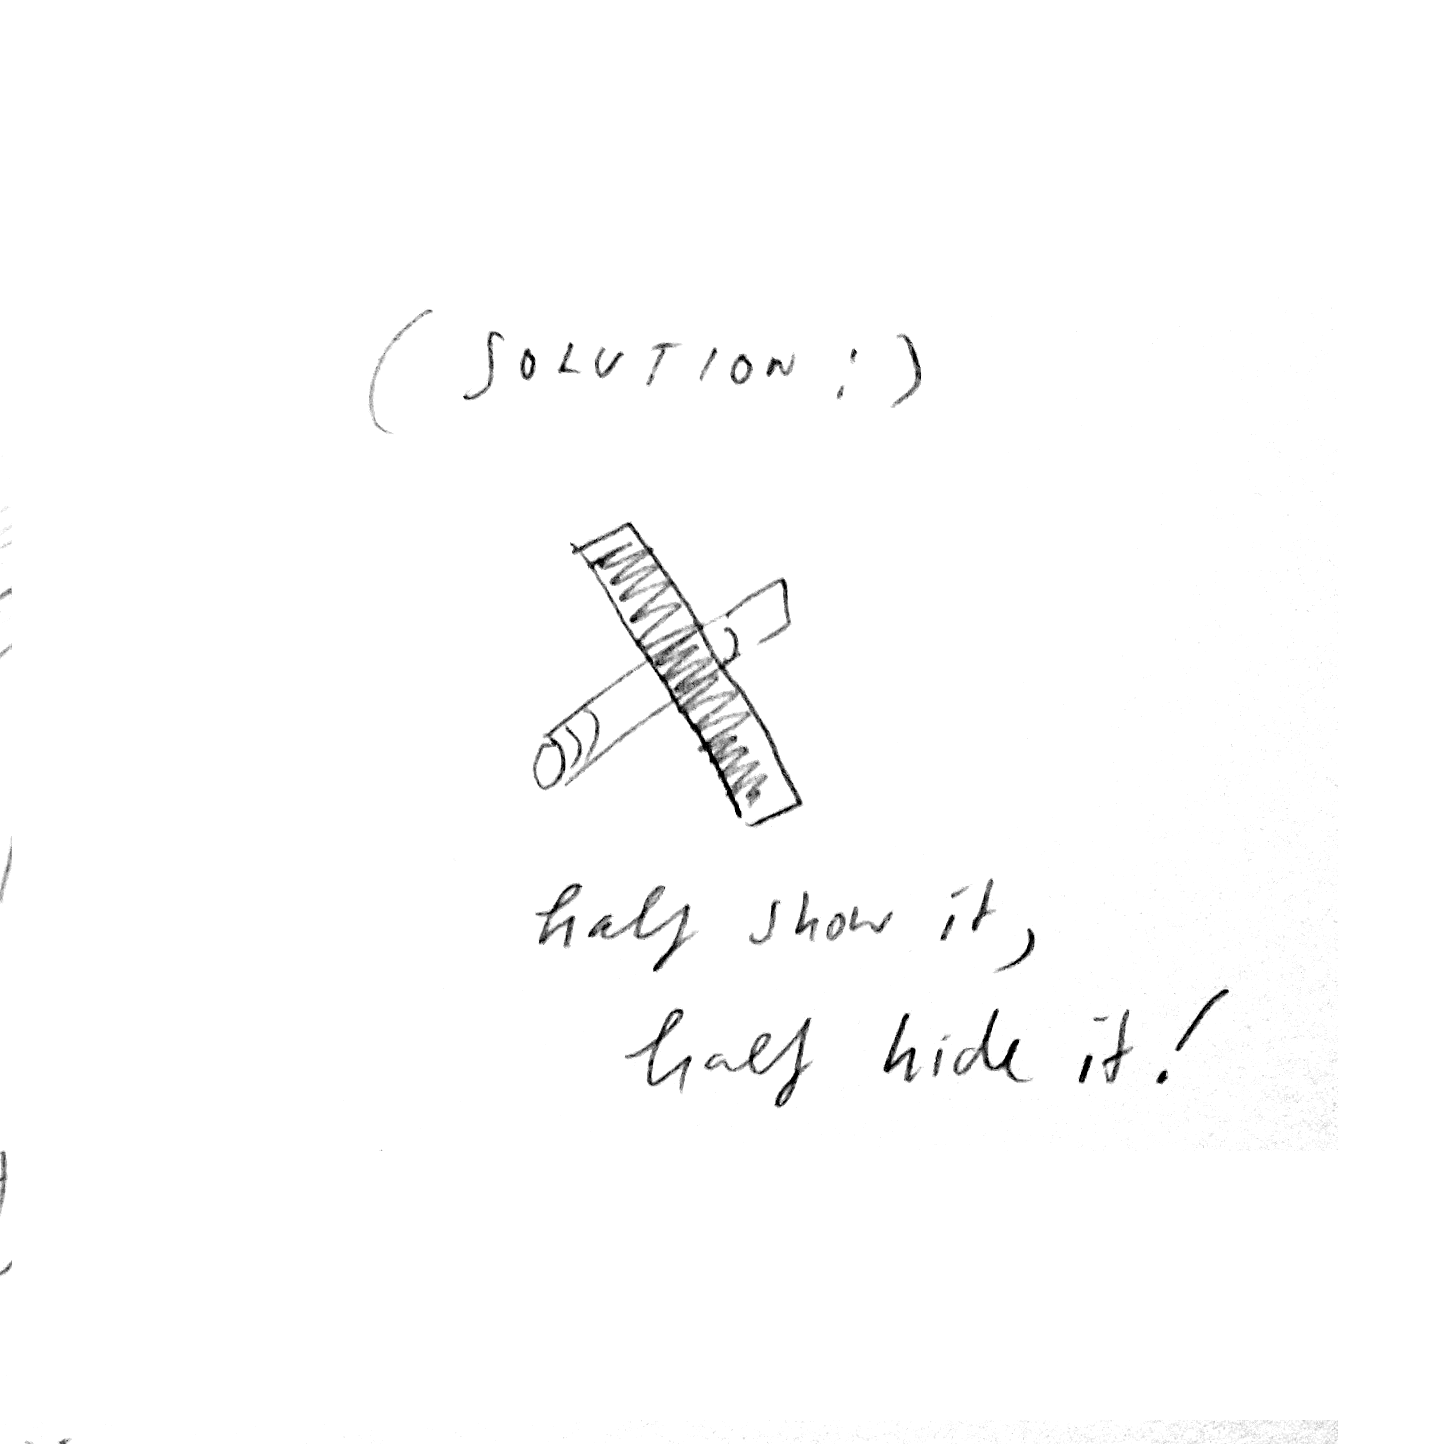 (SOLUTION:)
half show it,
half hide it!